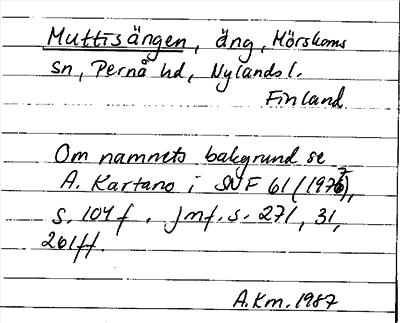 Muttisängen, äng, Mörskoms
sn, Pernå hd, Nylands l.
Finland
Om namnets bakgrund se
A. Kartano i SNF 61 (1976),
s. 104 f. Jmf. s. 271, 31,
261 ff.
A.Km. 1987